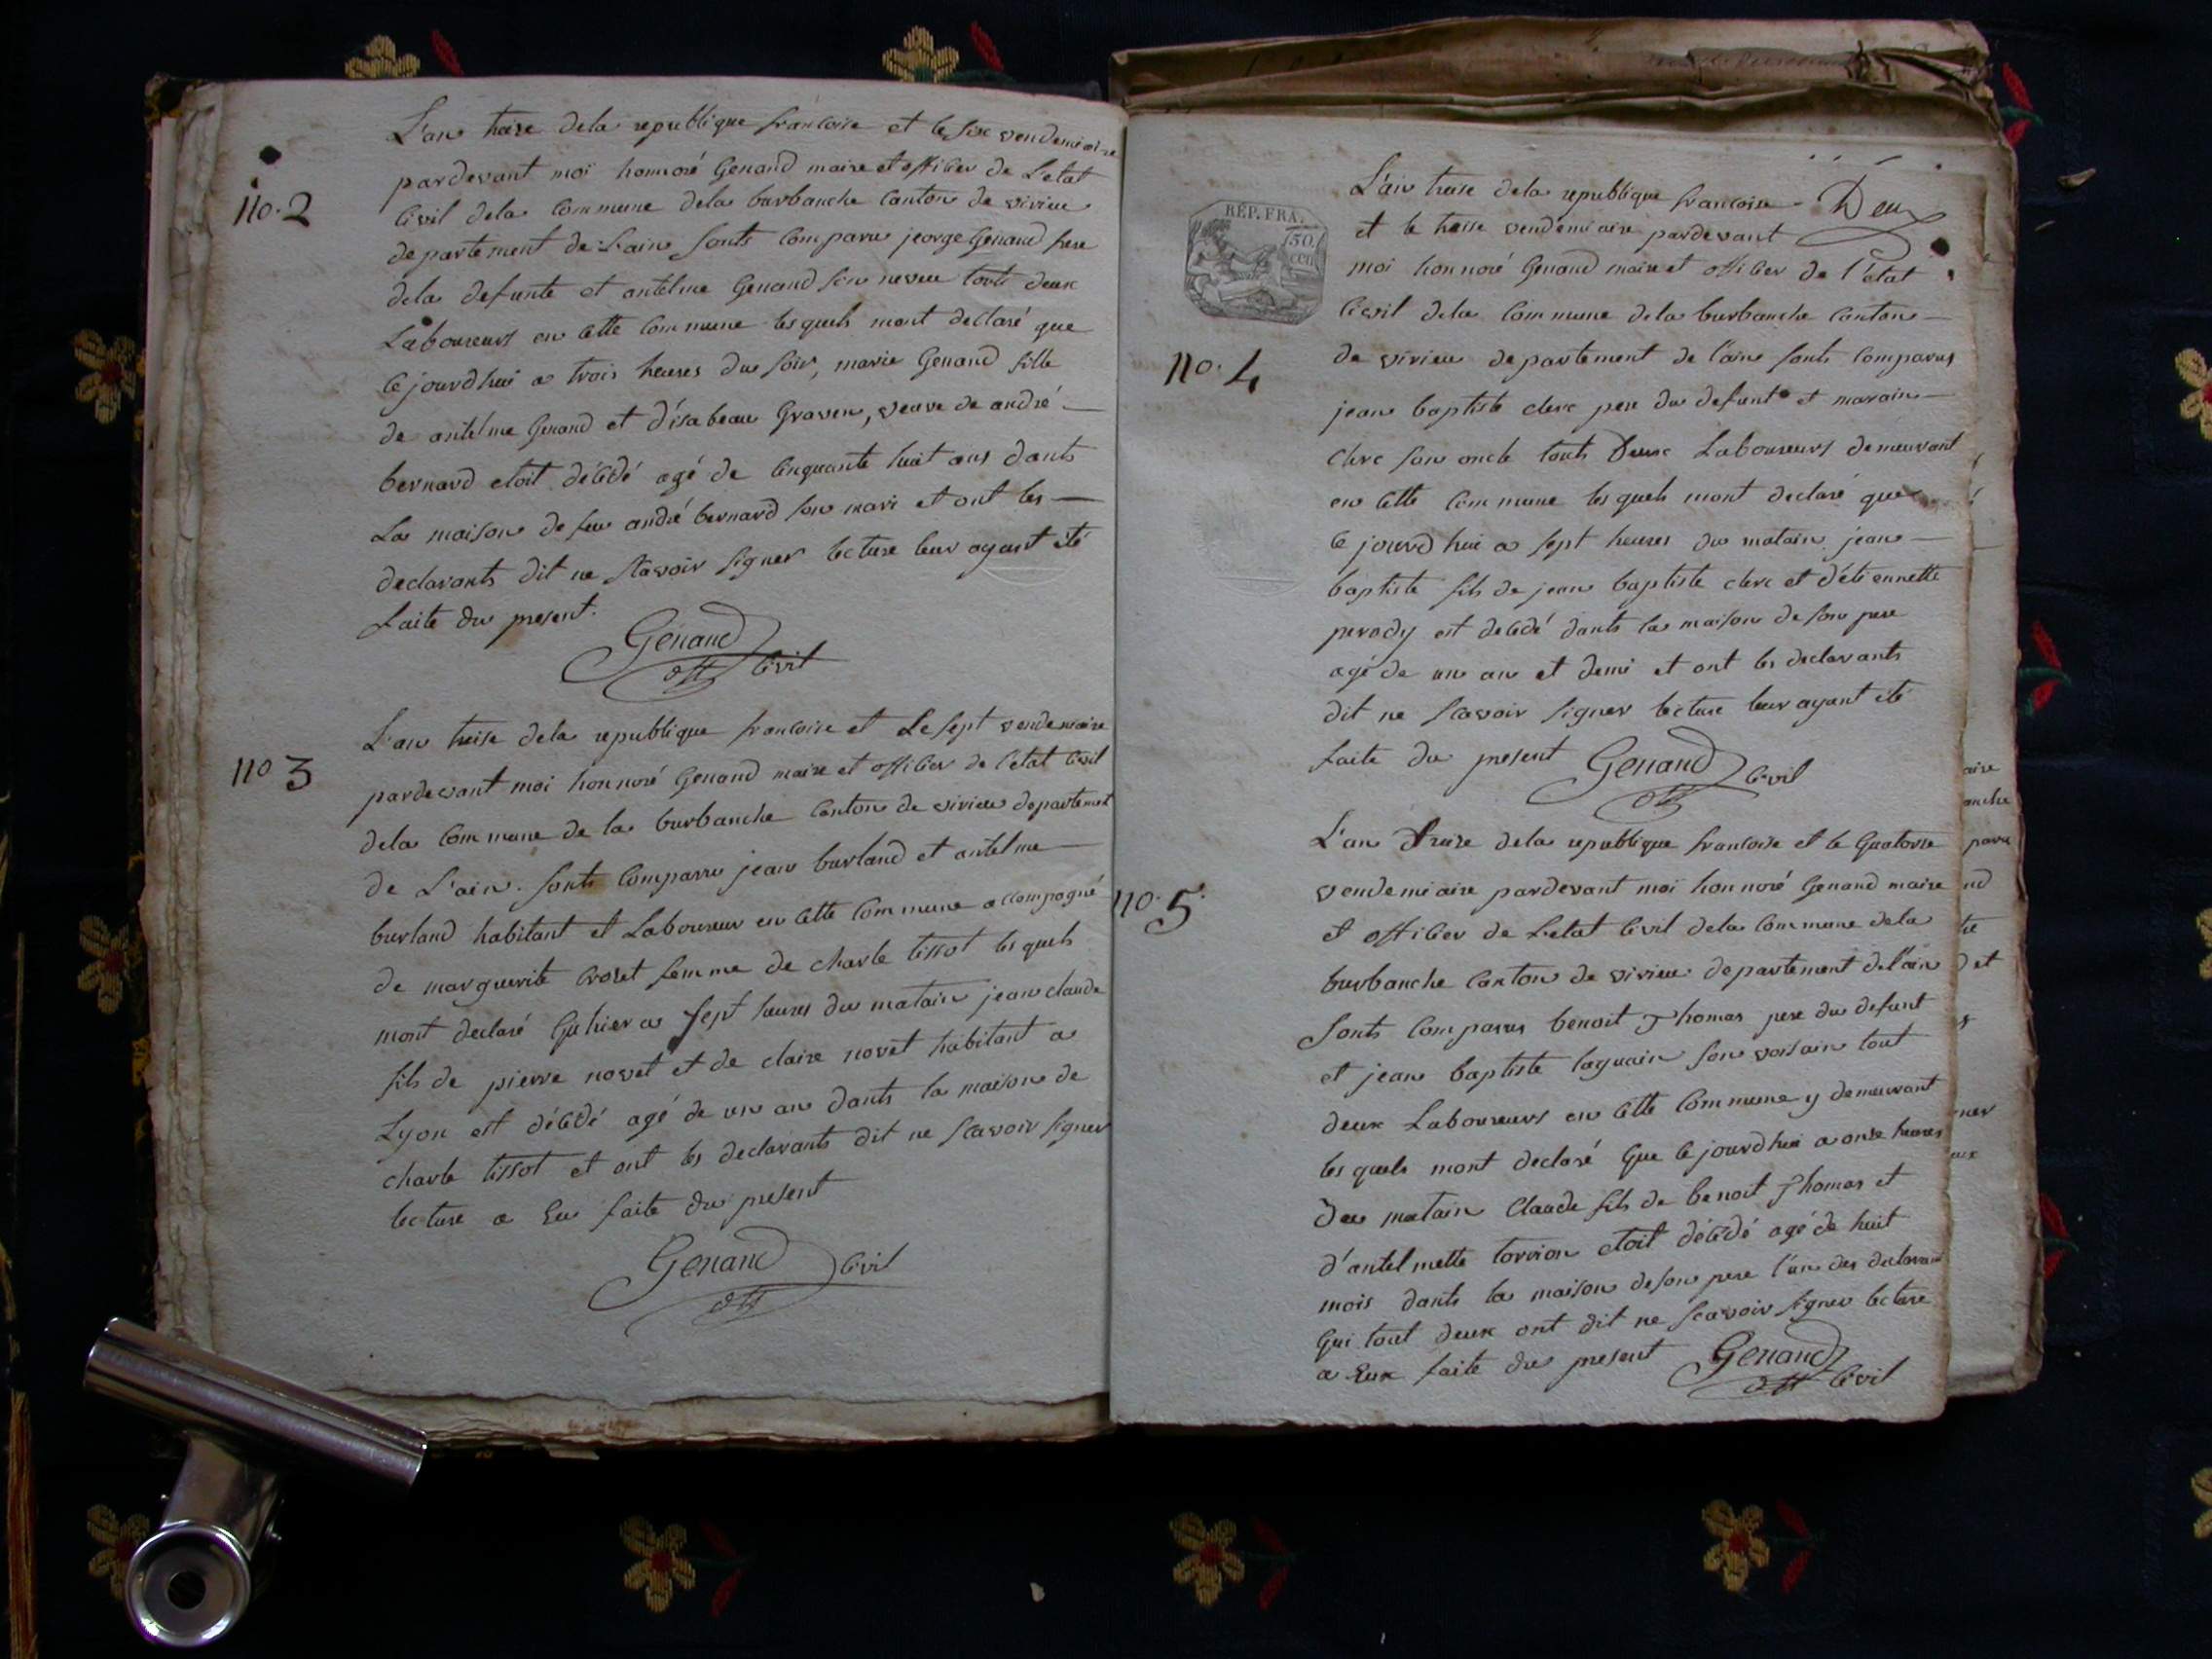 L'an treize dela republique francoise et le six vendemiaire
pardevant moi honnoré Genand maire et officier de L'etat
no. 2
Civil dela Commune dela burbanche Canton de virieu
departement de L'ain sonts Comparu jeorge Genand frere
dela defunte et antelme Genand son neveu touts deux
Laboureurs en Cette Commune lesquels mont declaré que
Cejourdhui a trois heures du soir, marie Genand fille
de antelme Genand et d'isabeau Graven, veuve de andré
bernard etoit décédé agé de Cinquante huit ans dants
La maison de feu andré bernard son mari et ont les
declarants dit ne scavoir signer lecture leur ayant été
faite du present.
Genand
off Civil
L'an treise dela republique francoise et Le sept vendemiaire
no 3
pardevant moi honnoré Genand maire et officier de l'etat Civil
dela Commune de la burbanche Canton de virieu departement
de L'ain. sonts Comparu jean burland et antelme
burland habitant et Laboureur en Cette Commune accompagné
de marguerite Croset femme de charle tissot lesquels
mont declaré Qu'hier a sept heures du matain jean claude
fils de pierre novet et de claire novet habitant a
Lyon est décédé agé de un an dants la maison de
charle tissot et ont les declarants dit ne scavoir signer
lecture a Eux faite du present
Genand
off Civil
Deux
REP. FRA.
50.
CEN
L'an treise dela republique francoise
et le treise vendemiaire pardevant
moi honnoré Genand maire et officier de l'état
Civil dela Commune dela burbanche Canton
no. 4
de virieu departement de l'ain sonts Comparus
jean baptiste clerc pere du defunt et marain
clerc son oncle touts Deux Laboureurs demeurant
en Cette Commune lesquels mont declaré que
Cejourdhui a sept heures du matain jean
baptiste fils de jean baptiste clerc et d'étiennette
perody est decédé dants la maison de son pere
agé de un an et demi et ont les declarants
dit ne scavoir signer lecture leur ayant été
faite du present
Genand
off Civil
L'an treize dela republique francoise et le Quatorse
no. 5.
vendemiaire pardevant moi honnoré Genand maire
et officier de L'etat Civil dela Commune dela
burbanche Canton de virieu departement de l'ain
sonts Comparus benoit Thomas pere du defunt
et jean baptiste laguain son voisain tout
deux Laboureurs en Cette Commune y demeurant
lesquels mont declaré Que Cejourdhui a onze heures
Du matain Claude fils de benoit Thomas et
d'antelmette torrion etoit décédé agé de huit
mois dants la maison de son pere l'un des declarants
Qui tout deux ont dit ne scavoir signer lecture
a Eux faite du present
Genand
off Civil